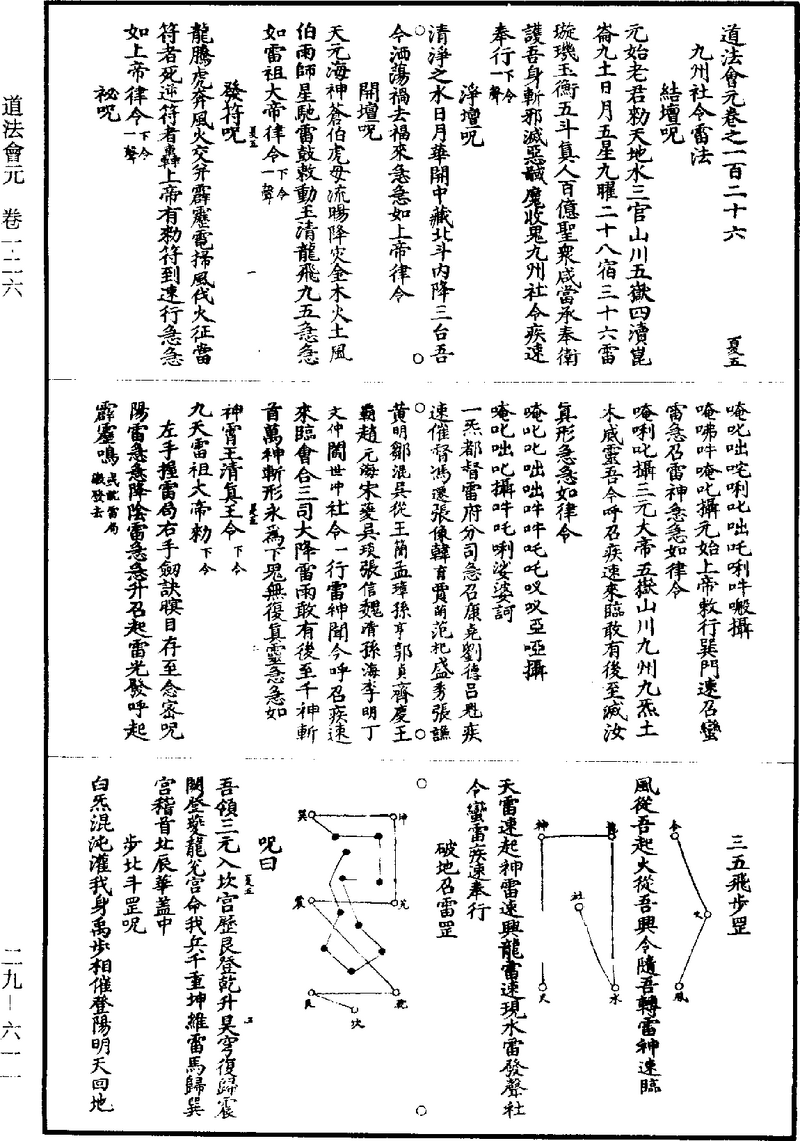 道法會元卷之一百二十六
夏五
九州社令雷法
結壇呪
元始老君勑天地水三官山川五嶽四瀆崑
崙九土日月五星九曜二十八宿三十六雷
璇璣玉衡五斗真人百億聖衆咸當承奉衛
護吾身斬邪滅惡馘魔收鬼九州社令疾速
奉行下令一聲
淨壇呪
清淨之水日月華開中藏北斗內降三台吾
今洒蕩禍去福來急急如上帝律令
開壇呪
天元海神蒼伯虎母流暘降灾金木火土風
伯雨師星馳雷鼓敕動王清龍飛九五急急
如雷祖大帝律令下令一聲
夏五
發符呪
龍騰虎奔風火交并霹靂電掃風伐火征當
符者死逆符者轟上帝有勑符到速行急急
如上帝律令下令一聲
祕呪
唵叱咄唗唎叱咄吒唎吽囐攝
唵咈吽唵叱攝元始上帝敕行巽門速召蠻
雷急召雷神急急如律令
唵唎叱攝三元大帝五嶽山川九州九炁土
木威靈吾今呼召疾速來臨敢有後至滅汝
真形急急如律令
唵叱叱咄咄吽吽吒吒㕚㕚亞啞攝
唵叱咄叱攝吽吒唎娑婆訶
一炁都督雷府分司急召康堯劉德呂魁疾
速催督馮還張像韓育賈萌范圯盛秀張譙
黃明鄒混吳從王蕳孟璋孫亨郭貞齊慶王
霸趙元海宋夔吳琰張信魏胥孫海李明丁
文仲閻世冲社令一行雷神聞今呼召疾速
來臨會合三司大降雷雨敢有後至千神斬
首萬神斬形永為下鬼無復真靈急急如
神霄王清真王令下令
夏五
九天雷祖大帝勑下令
左手握雷局右手劒訣瞑目存至念密呪
陽雷急急降陰雷急急升召起雷光發呼起
霹靂鳴
三五飛步罡
金
火
風
風從吾起火從吾興令隨吾轉雷神速臨
神
社
水
天
天雷速起神雷速興龍雷速現水雷發聲社
令蠻雷疾速奉行
破地召雷罡
巽
坤
震
兌
艮
坎
乾
呪曰
吾領三元入坎宮歷艮登乾升昊穹復歸震
夏五
闕登夔龍兌宮命我兵千重坤維雷馬歸巽
宮稽首北辰華蓋中
步北斗罡呪
白炁混沌灌我身禹步相催登陽明天回地
道法會元 卷一二六
二九－六一一